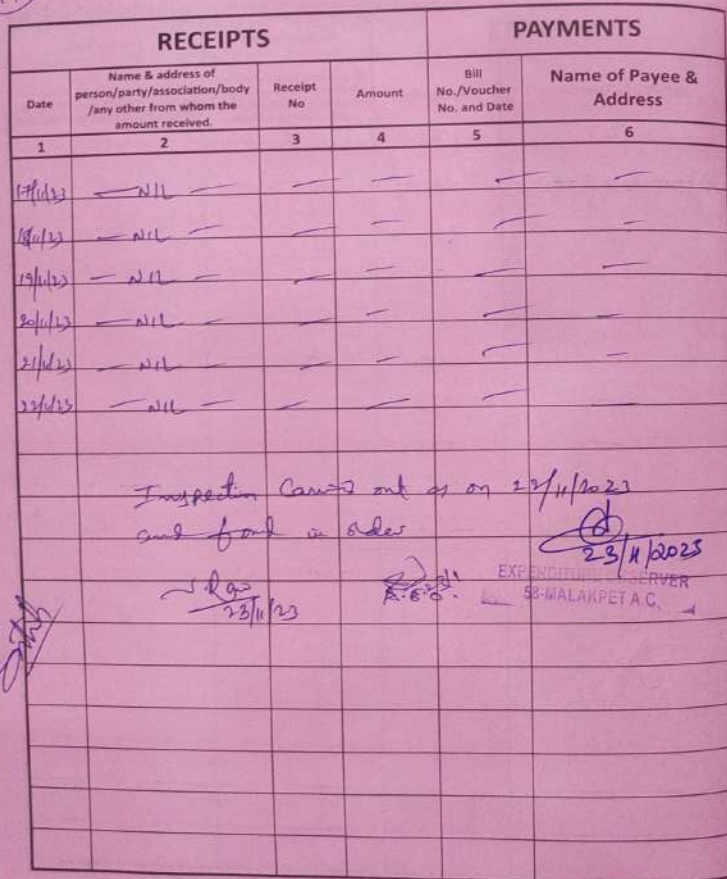 RECEIPTS PAYMENTS
Date Name & address of person/party/association/body /any other from whom the amount received. Receipt No Amount Bill No./Voucher No. and Date Name of Payee & Address
1 2 3 4 5 6
17/11/23 — NIL — — — — —
18/11/23 — NIL — — — — —
19/11/23 — NIL — — — — —
20/11/23 — NIL — — — — —
21/11/23 — NIL — — — — —
22/11/23 — NIL — — — — —
Inspection Carried out as on 22/11/2023
and fond in order
23/11/2023
EXPENDITURE OBSERVER
58-MALAKPET A.C.
23/11/23